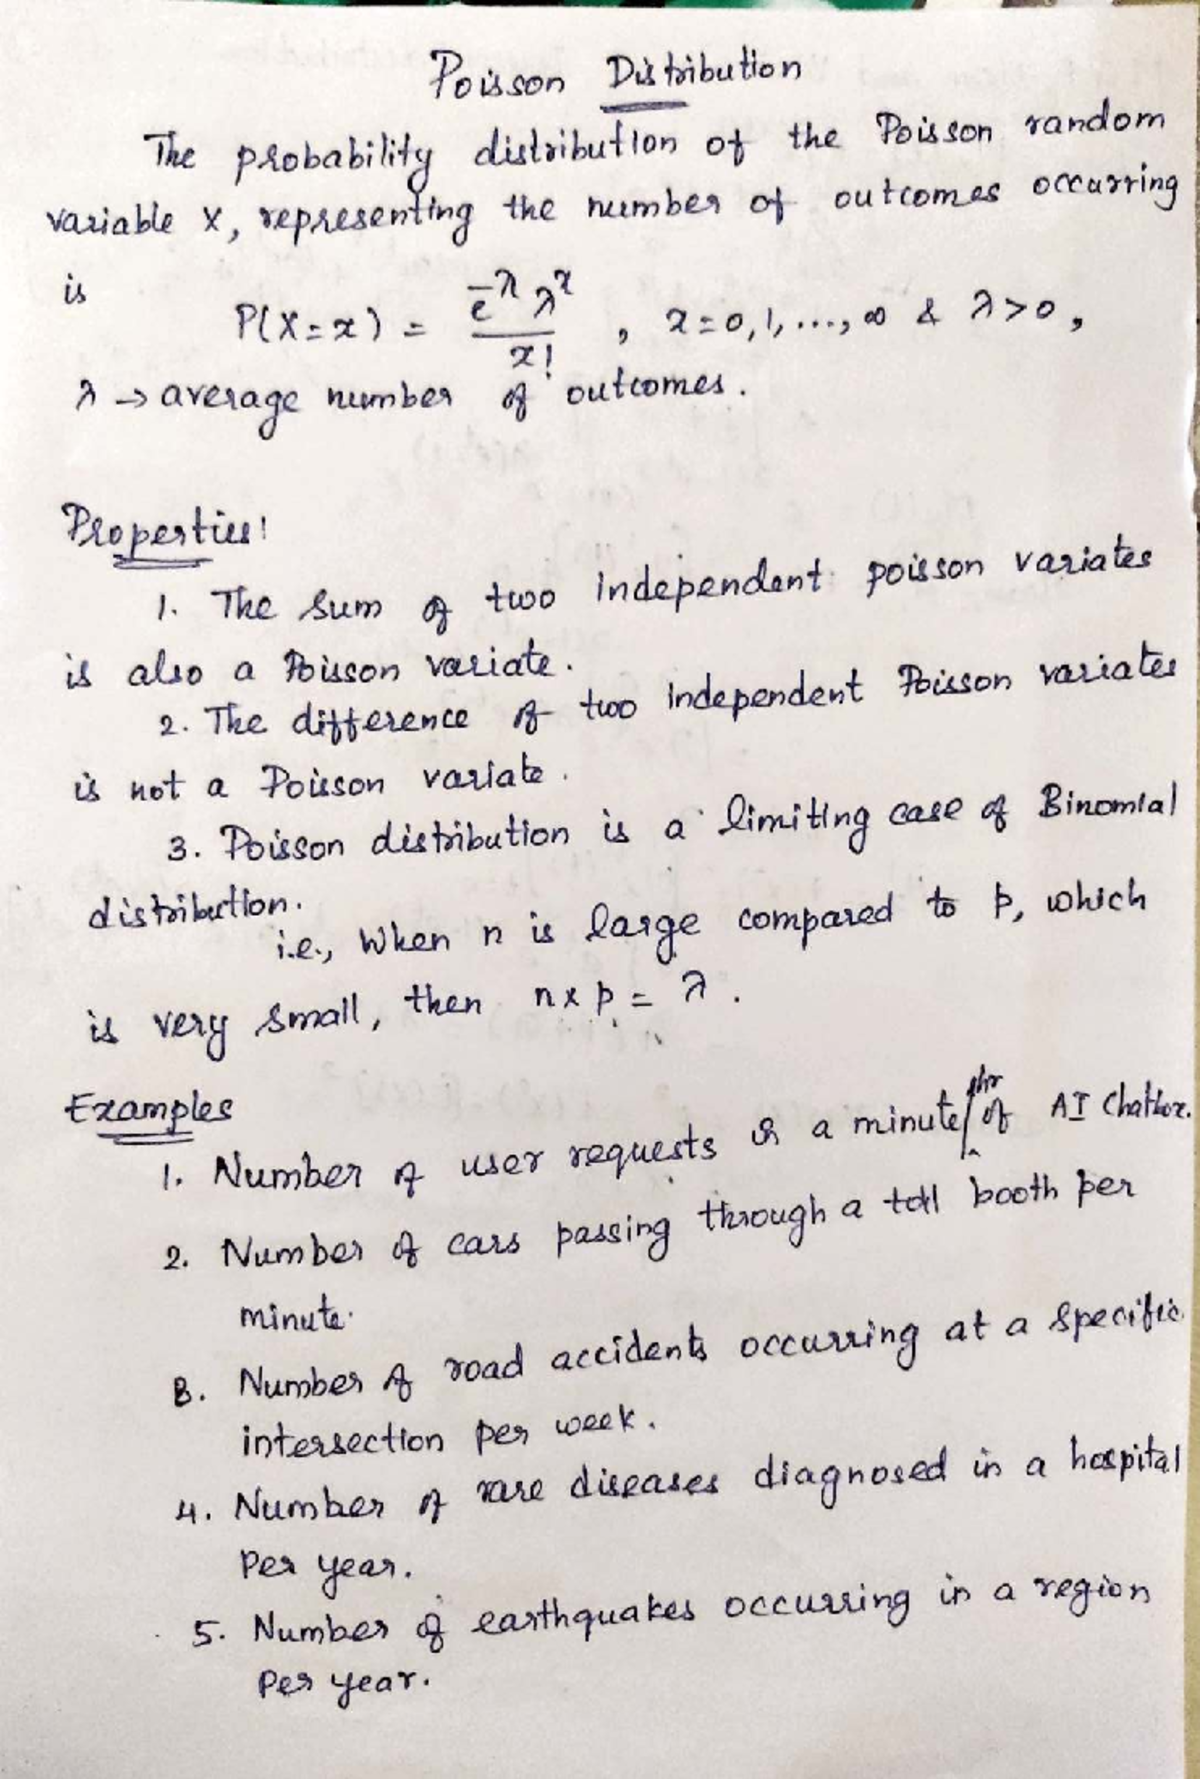 Poisson Distribution
The probability distribution of the Poisson random
variable X, representing the number of outcomes occurring
is
P(X=x) = e^-λ λ^x / x! , x=0,1,...,∞ & λ>0,
λ → average number of outcomes.
Properties:
1. The sum of two independent poisson variates
is also a Poisson variate.
2. The difference of two independent Poisson variates
is not a Poisson variate.
3. Poisson distribution is a limiting case of Binomial
distribution.
i.e., when n is large compared to p, which
is very small, then n x p = λ.
Examples
1. Number of user requests in a minute/hr of AI Chatbox.
2. Number of cars passing through a toll booth per
minute.
3. Number of road accidents occurring at a specific
intersection per week.
4. Number of rare diseases diagnosed in a hospital
Per year.
5. Number of earthquakes occurring in a region
Per year.